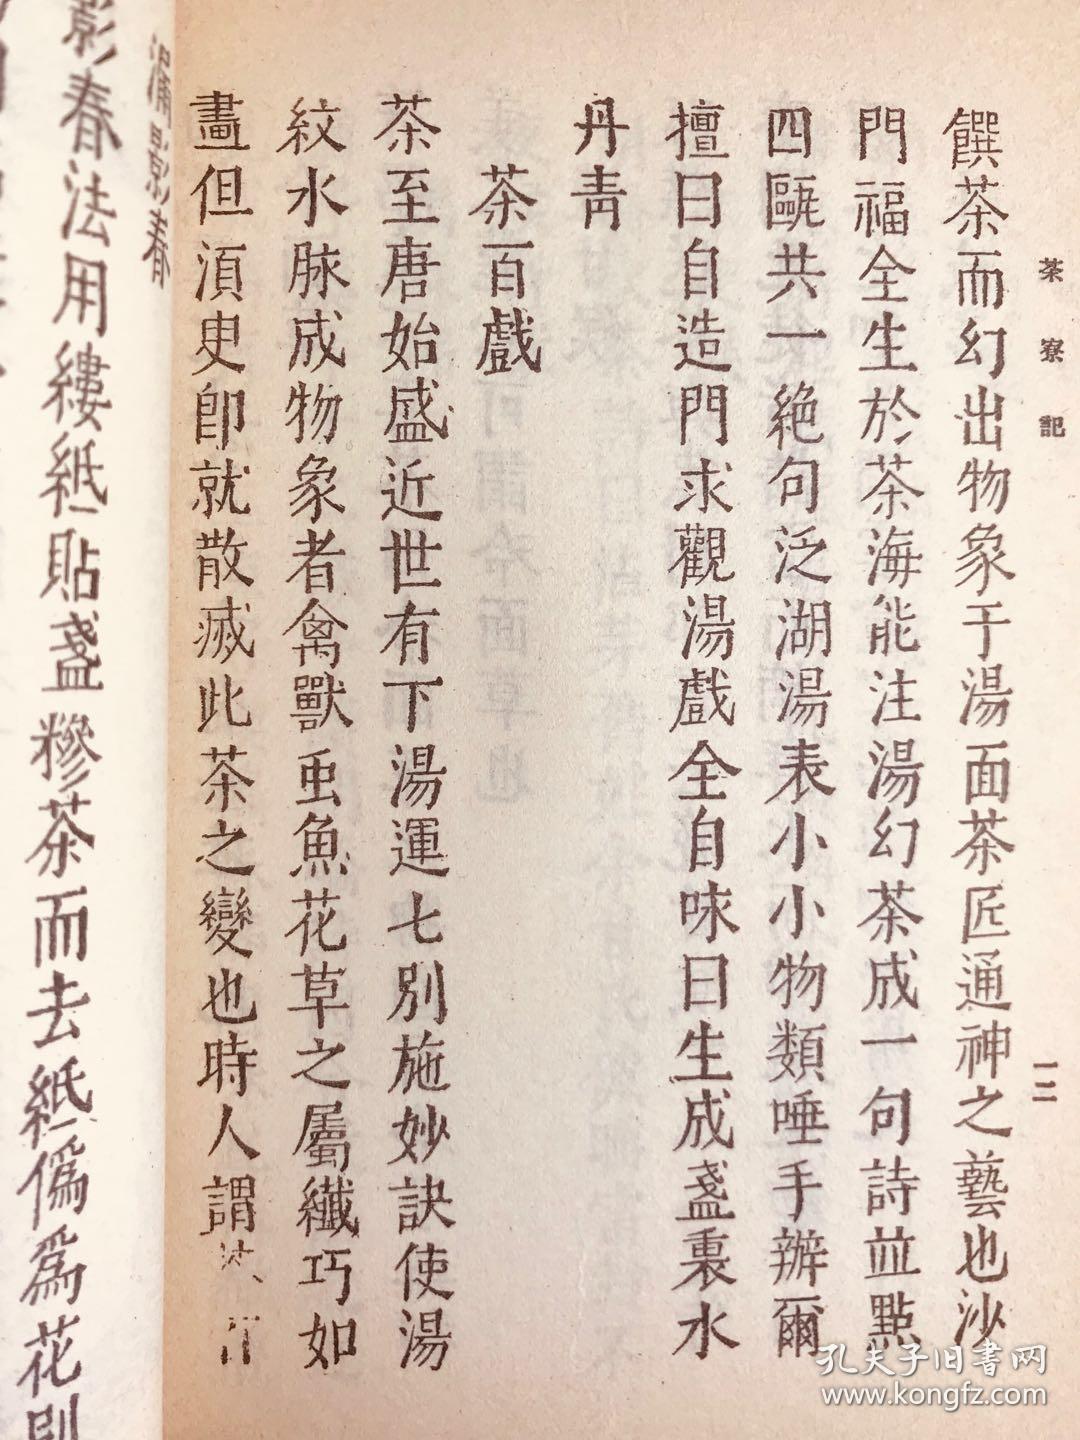 茶寮記
一二
饌茶而幻出物象于湯面茶匠通神之藝也沙
門福全生於茶海能注湯幻茶成一句詩並點
四甌共一絶句泛湖湯表小小物類唾手辦爾
擅曰自造門求觀湯戲全自咏曰生成盞裏水
丹靑
茶百戲
茶至唐始盛近世有下湯運七別施妙訣使湯
紋水脉成物象者禽獸虫魚花草之屬纖巧如
畫但須臾卽就散滅此茶之變也時人謂
漏影春
影春法用縷紙貼盞糝茶而去紙僞爲花別
孔夫子旧書网
www.kongfz.com